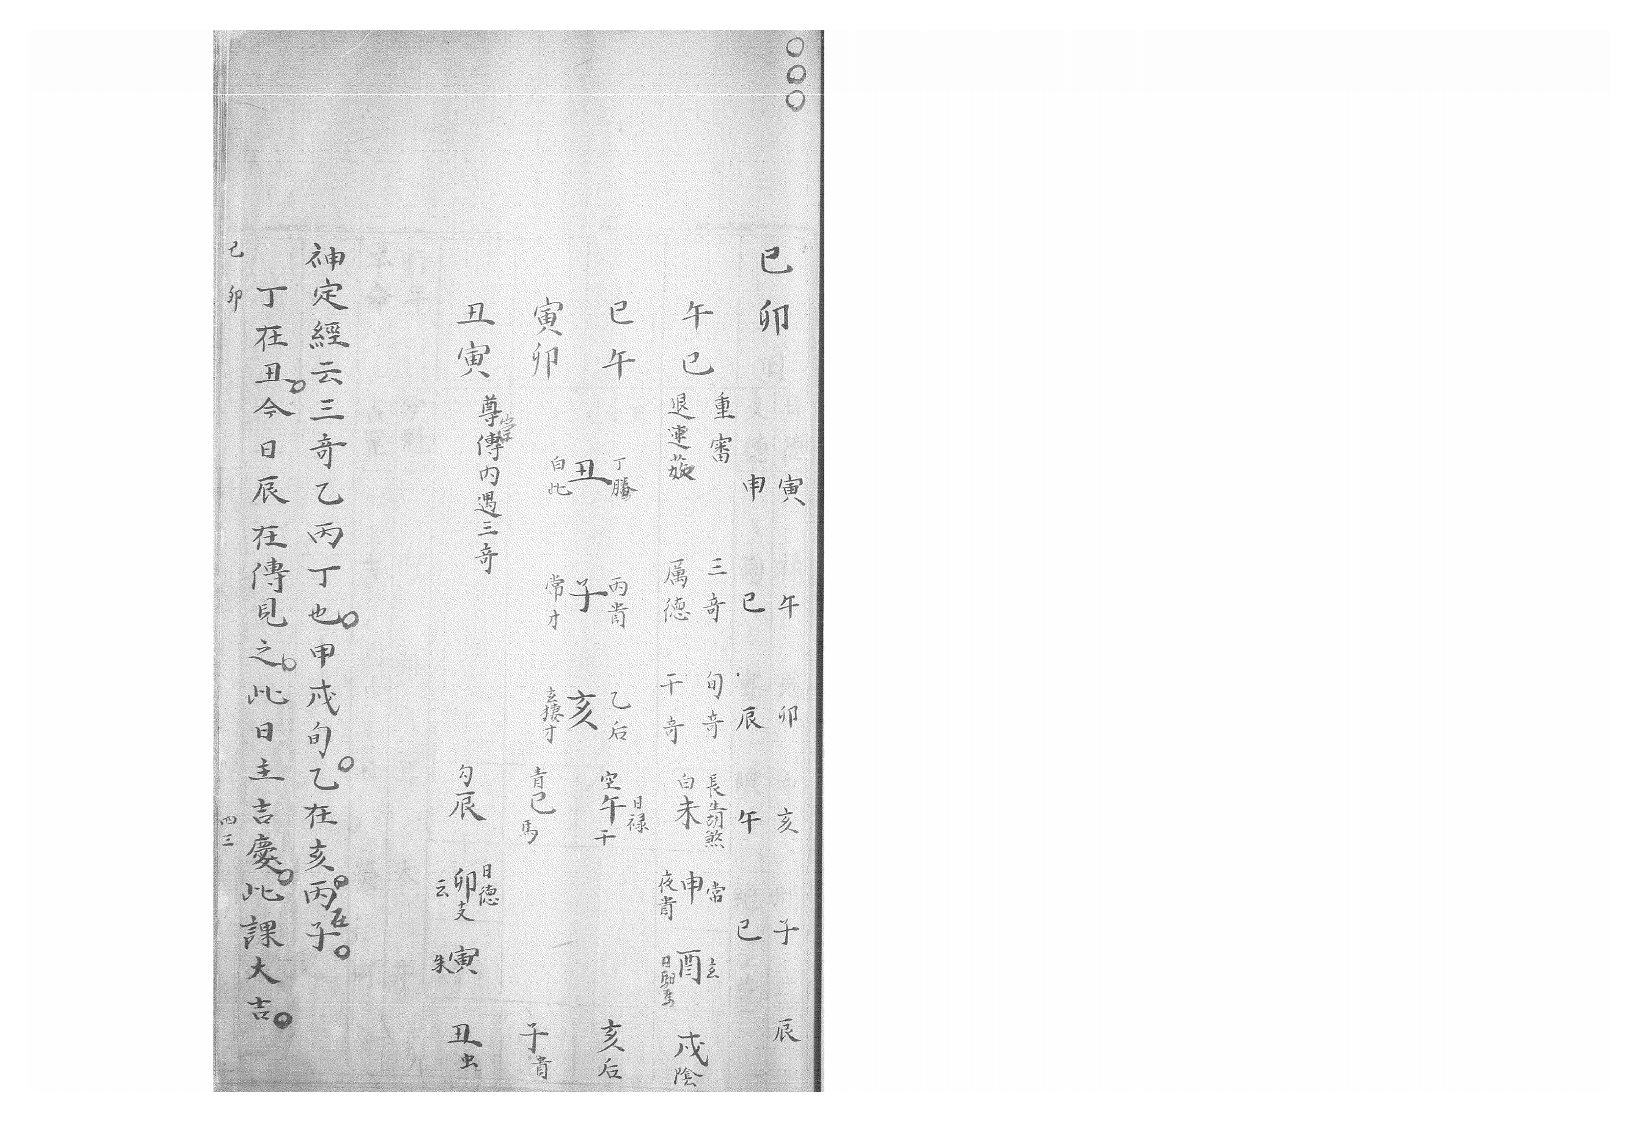 ○○○
己卯
寅午卯亥子辰
申巳辰午巳
午巳
重審
三奇
旬奇
退連茹
厲德
干奇
長生 胡煞
白未
常
申
夜貴
玄
酉
日馹馬
戌陰
巳午
丁螣
丑
白比
丙貴
子
常才
乙后
亥
玄才
空午干
日祿
亥后
寅卯
青巳馬
子貴
丑寅
尊
傳內遇三奇
勾辰
日德
卯支
寅朱
丑虫
神定經云三奇乙丙丁也○甲戌旬○乙在亥○丙在子○
丁在丑○今日辰在傳見之○此日主吉慶○此課大吉○
己卯
四三